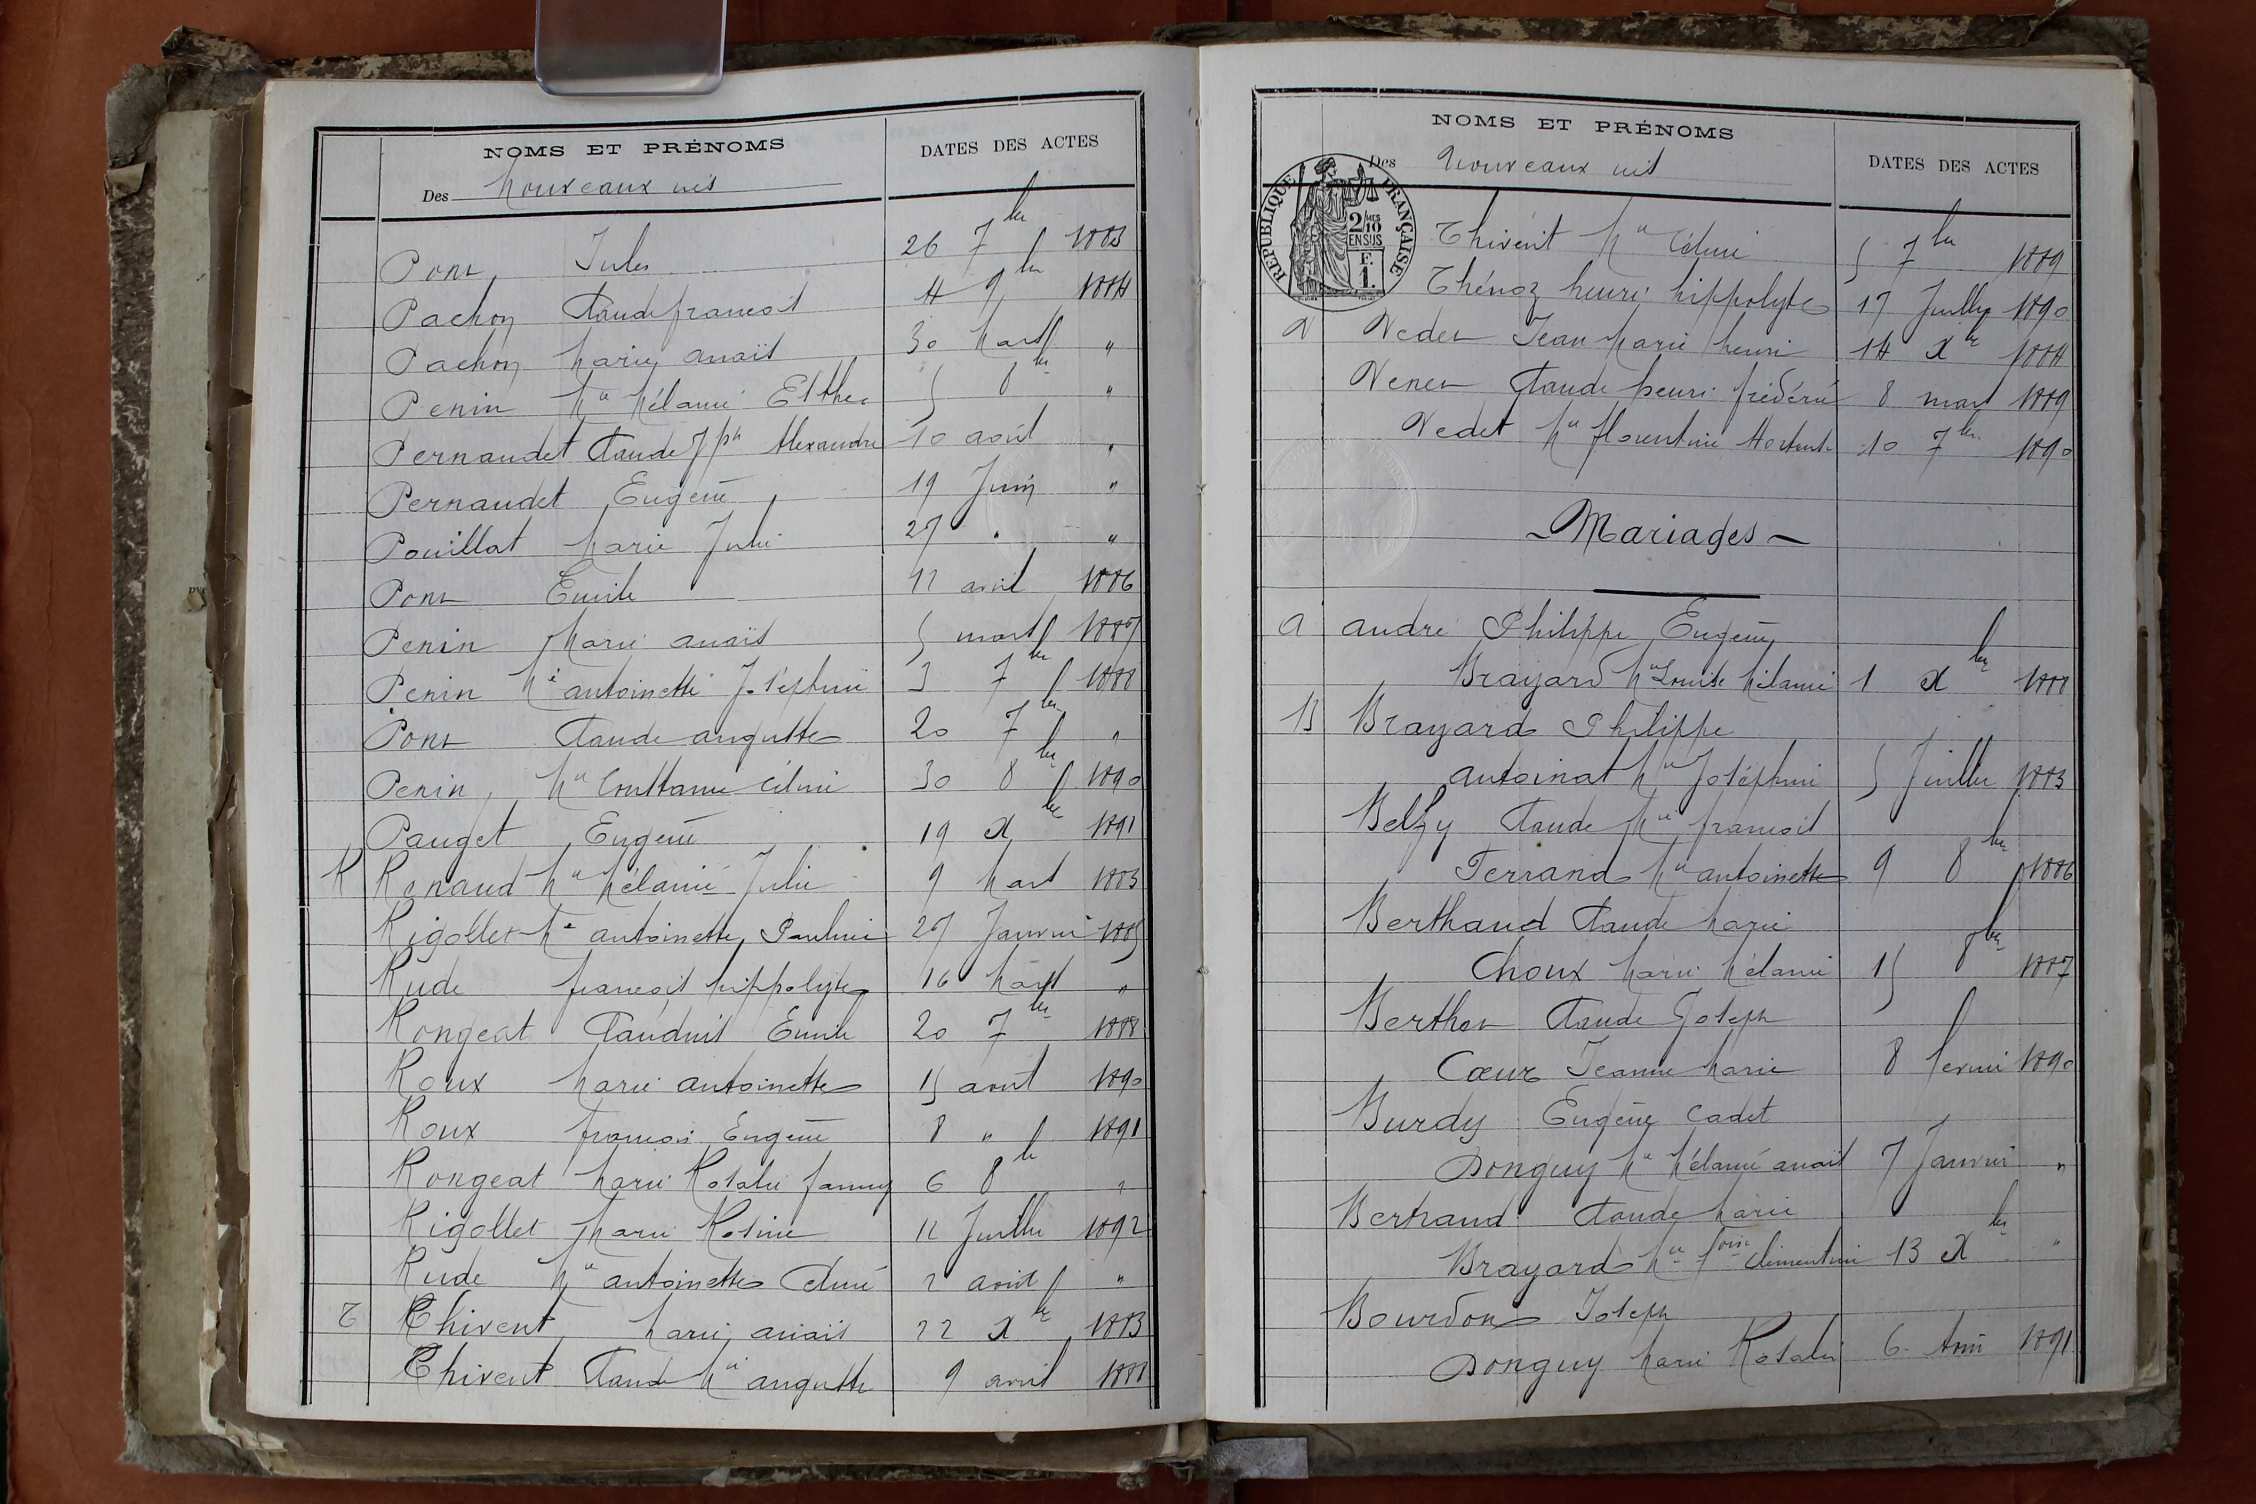 NOMS ET PRÉNOMS
DATES DES ACTES
Des nouveaux nés
Pont Jules 26 7bre 1883
Pachon Claude françois 4 9bre 1884
Pachon Marie anaïs 30 Mars "
Penin Mie Mélanie Esther 5 8bre "
Pernaudet Claude Jph Alexandre 10 août "
Pernaudet Eugène 19 Juin "
Pouillat Marie Julie 27 " "
Pont Emile 12 avril 1886
Penin Marie anaïs 5 mars 1887
Penin Mie antoinette Joséphine 3 7bre 1888
Pont Claude auguste 20 7bre "
Penin Mie Constance Célinie 30 8bre 1890
Pauget Eugène 19 Xbre 1891
R Renaud Mie Mélanie Julie 9 Mars 1883
Rigollet Mie antoinette Pauline 27 Janvier 1885
Rude françois hippolyte 16 Mars "
Rongeat Claudius Emile 20 7bre 1888
Roux Marie antoinette 15 août 1890
Roux françois Eugène 8 " 1891
Rongeat Marie Rosalie fanny 6 8bre "
Rigollet Marie Rosine 12 Juillet 1892
Rude Mie antoinette Célinie 2 août "
T Thivent Marie anaïs 22 Xbre 1883
Thivent Claude Mie auguste 9 avril 1888
NOMS ET PRÉNOMS
DATES DES ACTES
Des Nouveaux nés
RÉPUBLIQUE FRANÇAISE
2/10MES
EN SUS
F.
1.
Thivent Mie Célinie 5 7bre 1889
Thénoz henri hippolyte 17 Juillet 1890
V Vedet Jean Marie henri 14 Xbre 1884
Venet Claude henri frédéric 8 mars 1889
Vedet Mie florentine Hortense 10 7bre 1890
Mariages
A andré Philippe Eugène
Brayard Mie Louise Mélanie 1 Xbre 1888
B Brayard Philippe
antoinat Mie Joséphine 5 Juillet 1883
Belzy Claude Mie françois
Ferrand Mie antoinette 9 8bre 1886
Berthaud Claude Marie
Choux Marie Mélanie 15 8bre 1887
Berthet Claude Joseph
Cœur Jeanne Marie 8 fevrier 1890
Burdy Eugène Cadet
Donguy Mie Mélanie anaïs 7 Janvier "
Bertrand Claude Marie
Brayard Mie fcoise Clémentine 13 Xbre "
Bourdon Joseph
Donguy Marie Rosalie 6 Avril 1891